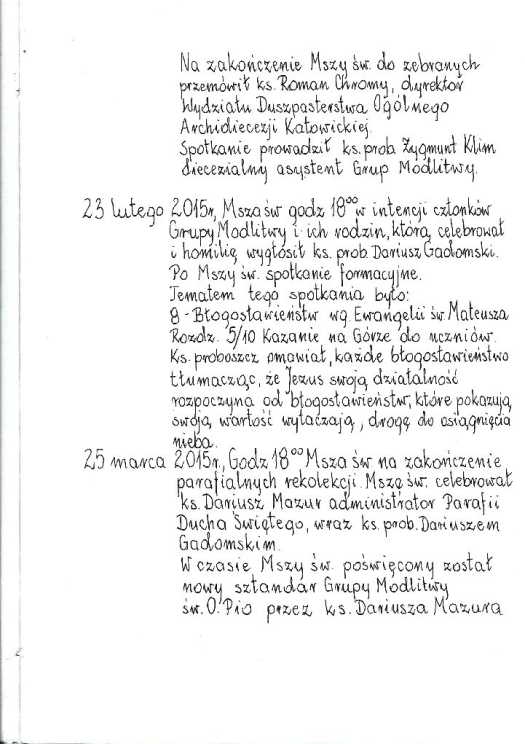 Na zakończenie Mszy św. do zebranych
przemówił ks. Roman Chromy, dyrektor
Wydziału Duszpasterstwa Ogólnego
Archidiecezji Katowickiej.
Spotkanie prowadził ks. prob. Zygmunt Klim
diecezjalny asystent Grup Modlitwy.
23 lutego 2015r, Msza św godz 18⁰⁰ w intencji członków
Grupy Modlitwy i ich rodzin, którą celebrował
i homilię wygłosił ks. prob. Dariusz Gadomski.
Po Mszy św. spotkanie formacyjne.
Tematem tego spotkania było:
8 - Błogosławieństw wg Ewangelii św. Mateusza
Rozdz. 5/10 Kazanie na Górze do uczniów.
Ks. proboszcz omawiał, każde błogosławieństwo
tłumacząc, że Jezus swoją działalność
rozpoczyna od błogosławieństw, które pokazują
swoją wartość wytaczają, drogę do osiągnięcia
nieba.
25 marca 2015r, Godz 18⁰⁰ Msza św na zakończenie
parafialnych rekolekcji. Mszę św. celebrował
ks. Dariusz Mazur administrator Parafii
Ducha Świętego, wraz ks. prob. Dariuszem
Gadomskim.
W czasie Mszy św. poświęcony został
nowy sztandar Grupy Modlitwy
św. O. Pio przez ks. Dariusza Mazura